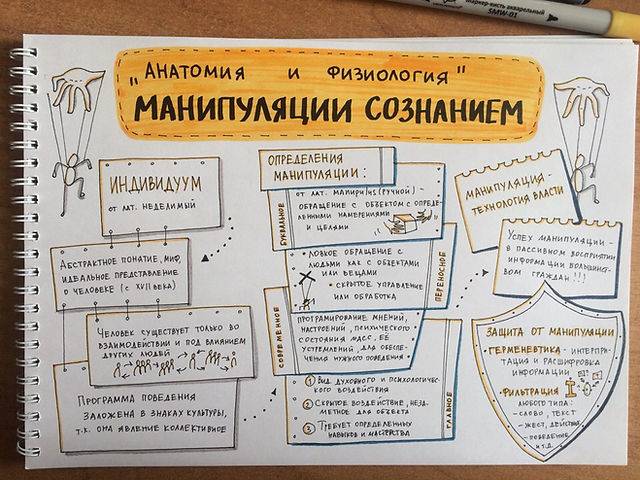 Маркер-кисть акварельный
SMW-01
"АНАТОМИЯ И ФИЗИОЛОГИЯ"
МАНИПУЛЯЦИИ СОЗНАНИЕМ
ИНДИВИДУУМ
ОТ ЛАТ. НЕДЕЛИМЫЙ
АБСТРАКТНОЕ ПОНЯТИЕ, МИФ,
ИДЕАЛЬНОЕ ПРЕДСТАВЛЕНИЕ
О ЧЕЛОВЕКЕ (С XVII ВЕКА)
ЧЕЛОВЕК СУЩЕСТВУЕТ ТОЛЬКО ВО
ВЗАИМОДЕЙСТВИИ И ПОД ВЛИЯНИЕМ
ДРУГИХ ЛЮДЕЙ
ПРОГРАММА ПОВЕДЕНИЯ
ЗАЛОЖЕНА В ЗНАКАХ КУЛЬТУРЫ,
Т.К. ОНА ЯВЛЕНИЕ КОЛЛЕКТИВНОЕ
ОПРЕДЕЛЕНИЯ
МАНИПУЛЯЦИИ:
БУКВАЛЬНОЕ
ОТ ЛАТ. (РУЧНОЙ) -
ОБРАЩЕНИЕ С ОБЪЕКТОМ С ОПРЕДЕ-
ЛЕННЫМИ НАМЕРЕНИЯМИ
И ЦЕЛЯМИ
ПЕРЕНОСНОЕ
• ЛОВКОЕ ОБРАЩЕНИЕ С
ЛЮДЬМИ КАК С ОБЪЕКТАМИ
ИЛИ ВЕЩАМИ
• СКРЫТОЕ УПРАВЛЕНИЕ
ИЛИ ОБРАБОТКА
СОВРЕМЕННОЕ
ПРОГРАМИРОВАНИЕ МНЕНИЙ,
НАСТРОЕНИЙ, ПСИХИЧЕСКОГО
СОСТОЯНИЯ МАСС, ЕЁ
УСТРЕМЛЕНИЙ, ДЛЯ ОБЕСПЕ-
ЧЕНИЯ НУЖНОГО ПОВЕДЕНИЯ
ГЛАВНОЕ
1 ВИД ДУХОВНОГО И ПСИХОЛОГИЧЕС-
КОГО ВОЗДЕЙСТВИЯ
2 СКРЫТОЕ ВОЗДЕЙСТВИЕ, НЕЗА-
МЕТНОЕ ДЛЯ ОБЪЕКТА
3 ТРЕБУЕТ ОПРЕДЕЛЕННЫХ
НАВЫКОВ И МАСТЕРСТВА
МАНИПУЛЯЦИЯ-
ТЕХНОЛОГИЯ ВЛАСТИ
УСПЕХ МАНИПУЛЯЦИИ -
В ПАССИВНОМ ВОСПРИЯТИИ
ИНФОРМАЦИИ БОЛЬШИНСТ-
ВОМ ГРАЖДАН!!!
ЗАЩИТА ОТ МАНИПУЛЯЦИИ
ГЕРМЕНЕВТИКА - ИНТЕРПРИ-
ТАЦИЯ И РАСШИФРОВКА
ИНФОРМАЦИИ
• ФИЛЬТРАЦИЯ
ЛЮБОГО ТИПА:
- СЛОВО, ТЕКСТ
- ЖЕСТ, ДЕЙСТВИЯ
- ПОВЕДЕНИЕ
И Т.Д.